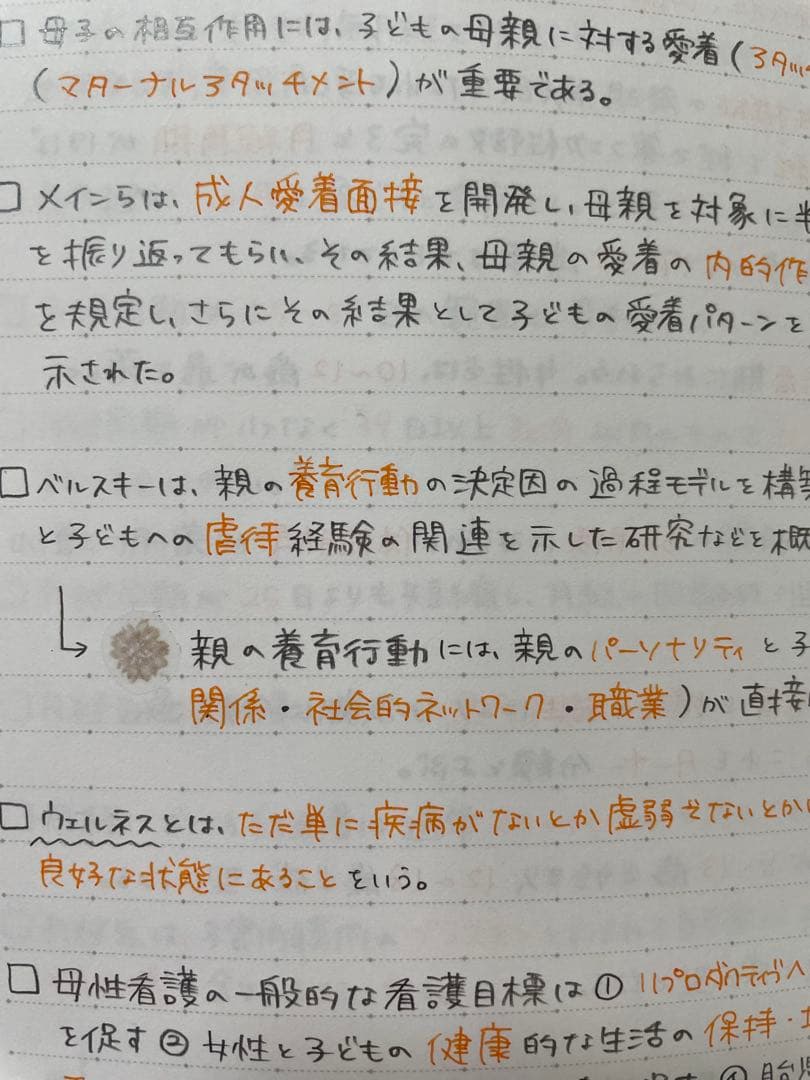 □ 母子の相互作用には、子どもの母親に対する愛着(アタッ
(マターナルアタッチメント)が重要である。
□ メインらは、成人愛着面接を開発し、母親を対象に
を振り返ってもらい、その結果、母親の愛着の内的作
を規定し、さらにその結果として子どもの愛着パターンを
示された。
□ ベルスキーは、親の養育行動の決定因の過程モデルを構築
と子どもへの虐待経験の関連を示した研究などを概
親の養育行動には、親のパーソナリティと子
関係・社会的ネットワーク・職業)が直接
□ ウェルネスとは、ただ単に疾病がないとか虚弱せないとか
良好な状態にあることをいう。
□ 母性看護の一般的な看護目標は① リプロダクティヴヘ
を促す ② 女性と子どもの健康的な生活の保持・